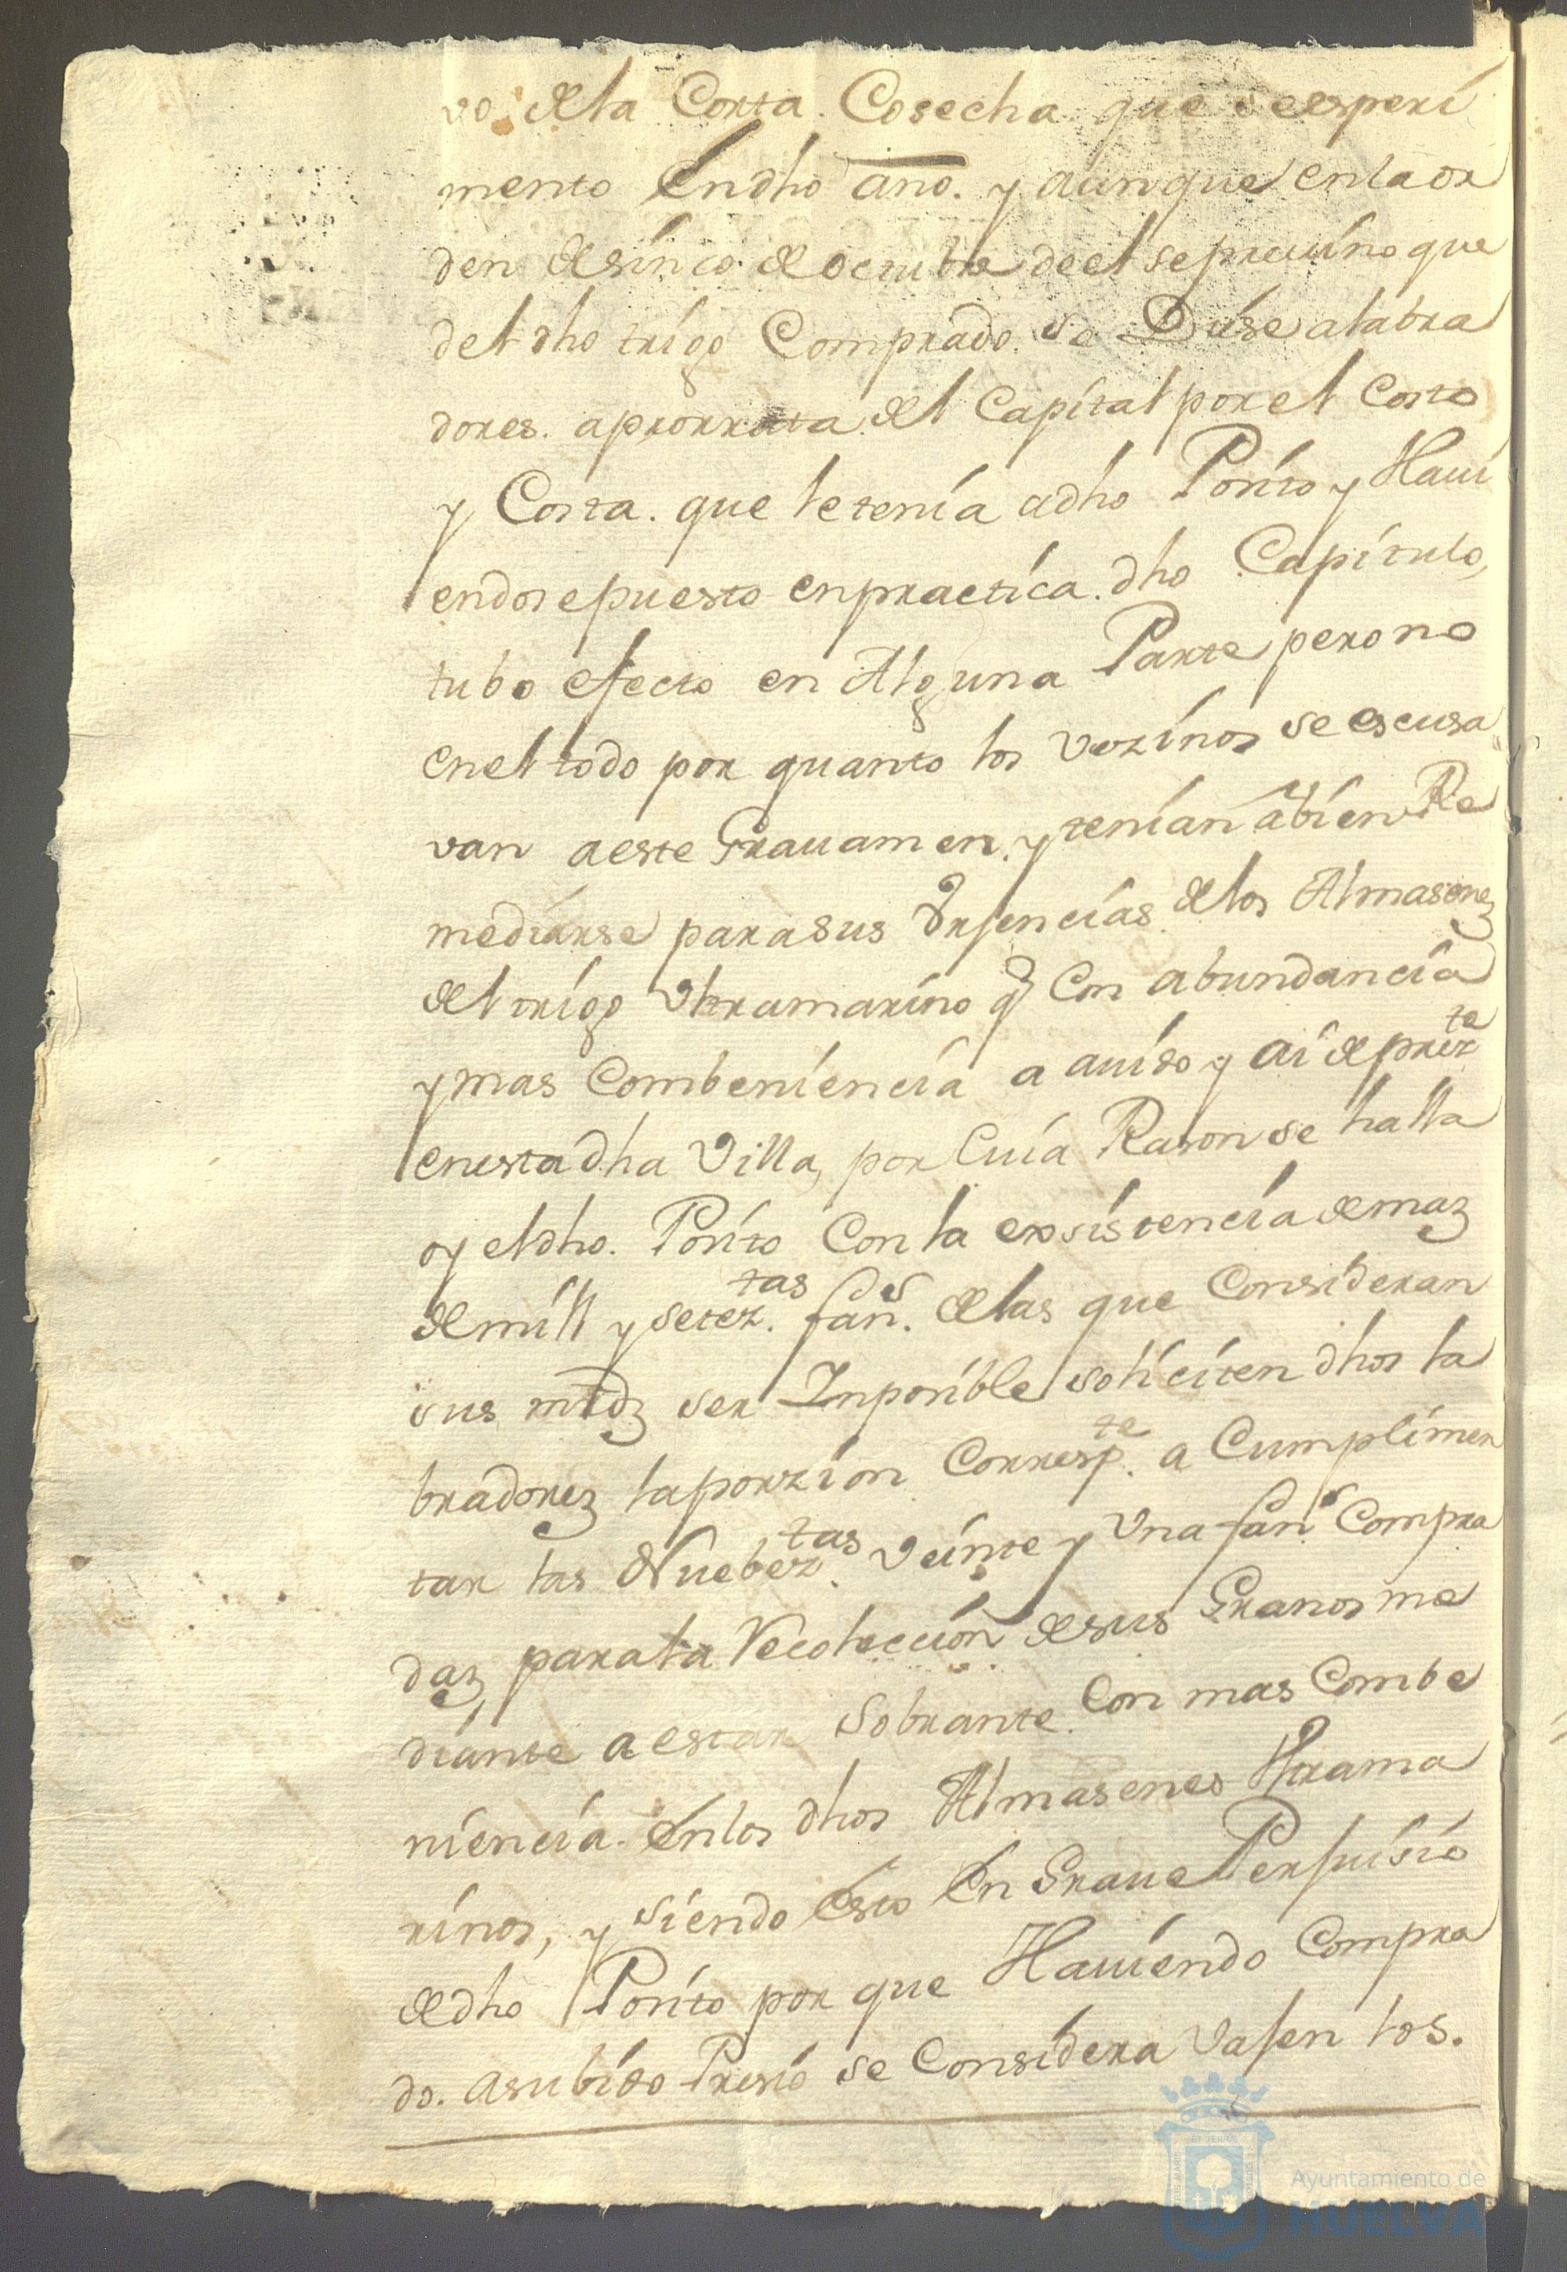 vo. de la Corta. Cosecha que seesperi
mento En dho año. y aunque en la or
den de sinco de octubre de el se preuino que
del dho trigo Comprado. se Diese a labra
dores. aprorrata del Capital por el Costo
y Costa. que le tenia a dho Posito y Haui
endose puesto en practica. dho Capitulo,
tubo efecto en Alguna Parte pero no
en el todo por quanto los vezinos se escusa
van a este Grauamen. y tenian abien Re
mediarse para sus Vrjencias de los Almasenez
del trigo Vltramarino q Con abundancia
y mas Combeniencia a auido y ai de preste
en esta dha Villa, por Cuia Rason se halla
oy el dho. Posito Con la exsistencia de maz
de mill y setez.tas fan.s de las que Consideran
sus mrdz ser Inposible soliciten dhos la
bradorez la porzion Corresp.te a Cumplimen
tar las Nuebez.tas veinte y Una fan.s Compra
daz, para la Recoleccion de sus Granos me
diante a estar Sobrante. Con mas Combe
niencia. En los dhos Almasenes Vltrama
rinos, y siendo Esto En Graue Perjuisio
de dho Posito por que Hauiendo Compra
do. a subido Presio se Considera vajen los.
Ayuntamiento de
HUELVA